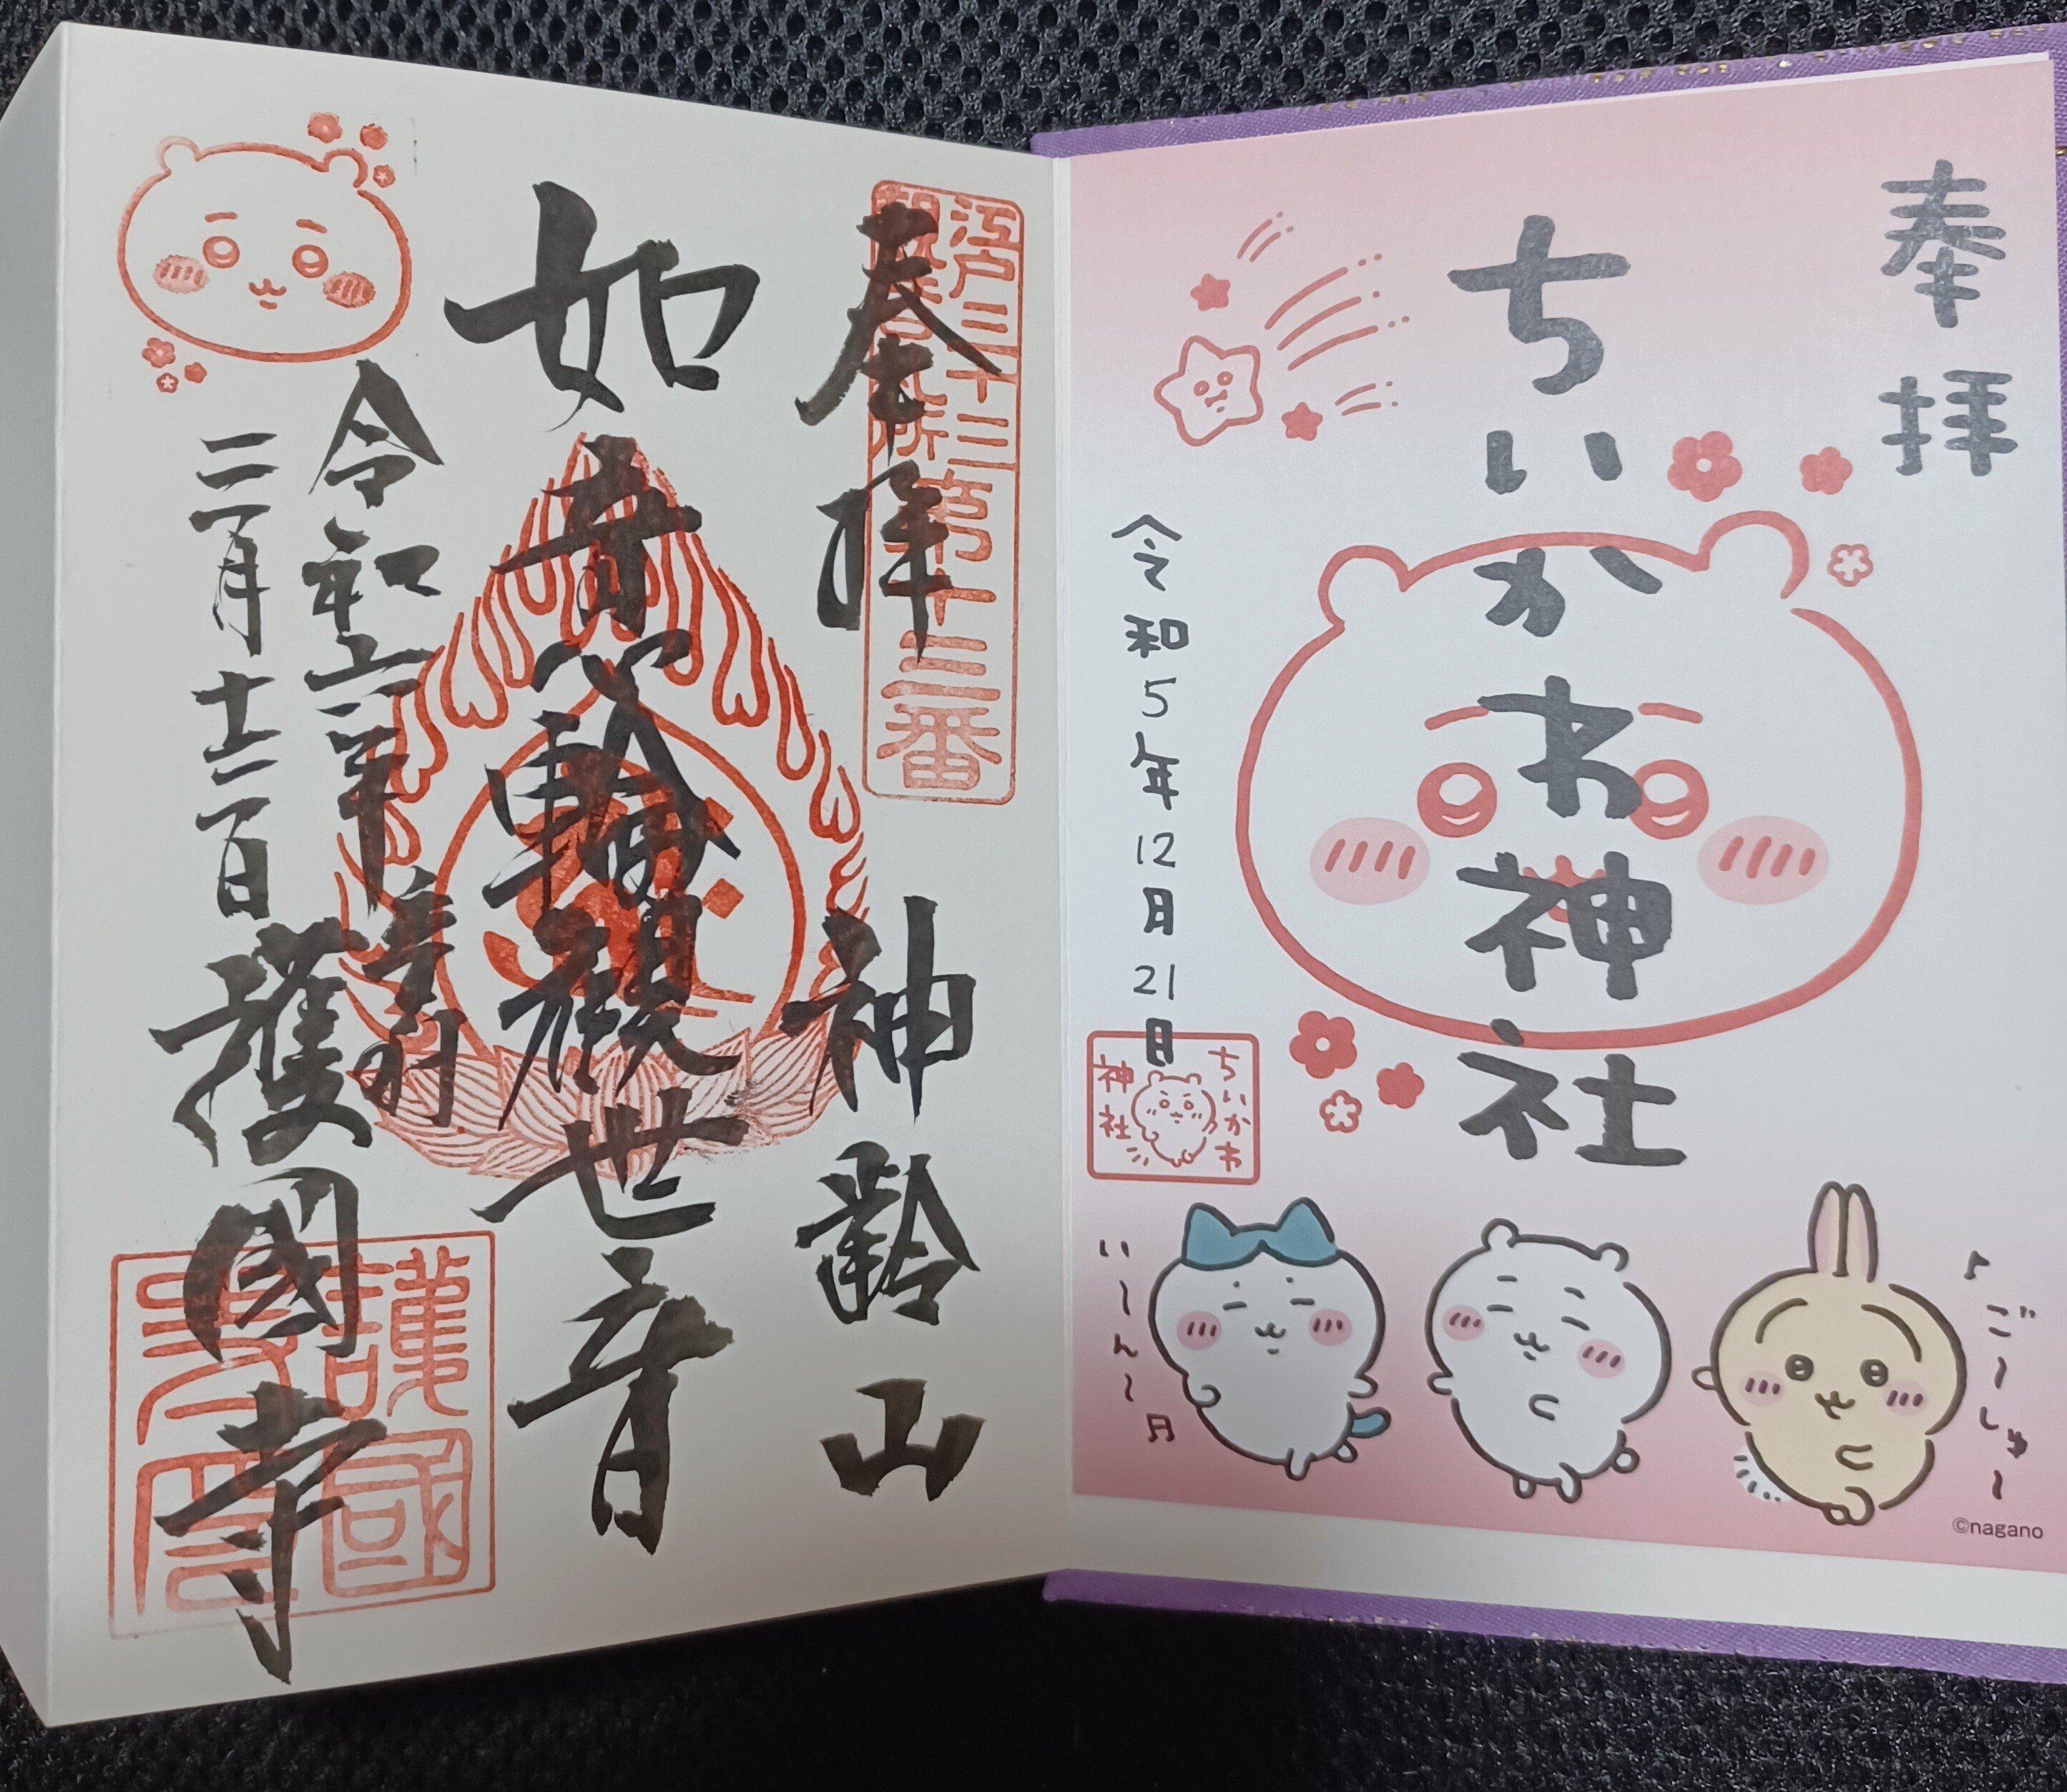 奉拝
ちいかわ神社
令和5年12月21日
ちいかわ
神社
♪ご〜しゅ〜
い〜ん〜♬
©nagano
江戸三十三第十三番
奉拝 神齢山
如意輪観世音
令和六年 音羽
護國寺
護國